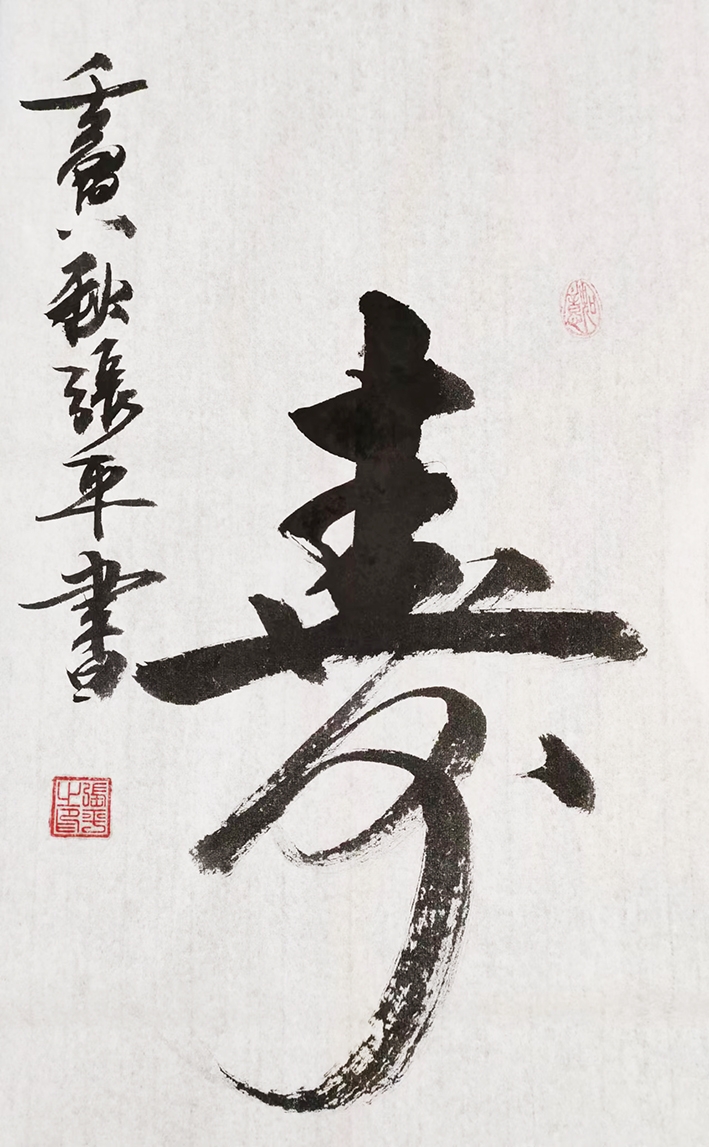 壽
壬寅秋張平書
張平
之印